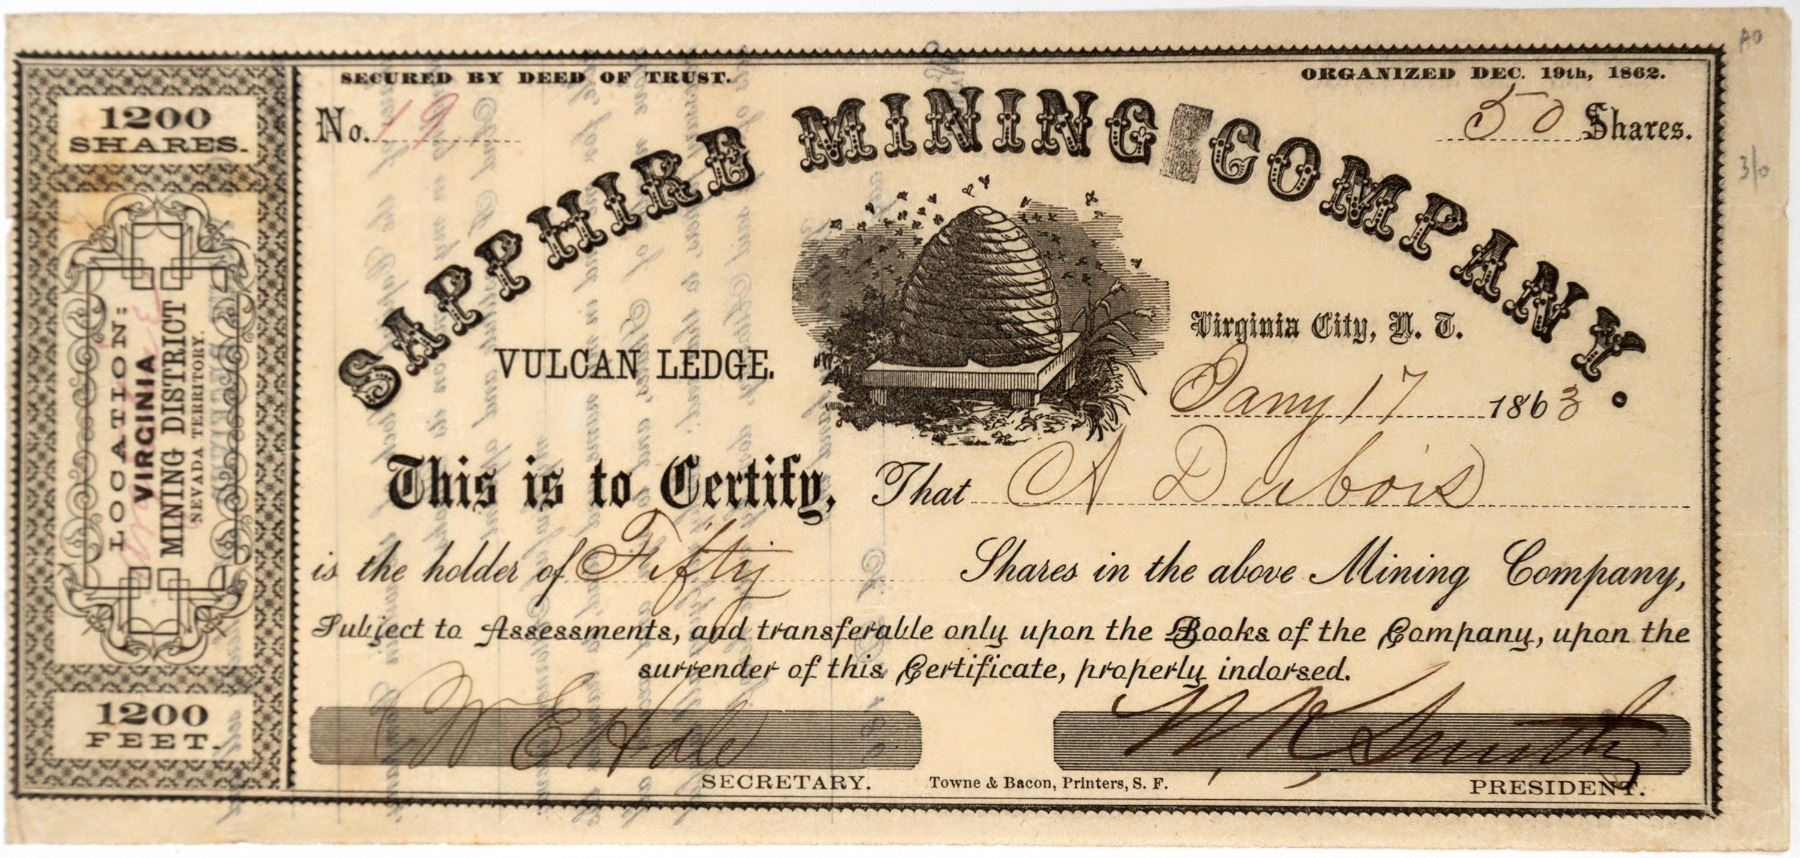 SECURED BY DEED OF TRUST.
ORGANIZED DEC. 19th, 1862.
No. 19
50 Shares.
SAPPHIRE MINING COMPANY.
VULCAN LEDGE.
Virginia City, N. T.
Jany 17 1863
This is to Certify, That A Dubois
is the holder of Fifty Shares in the above Mining Company,
Subject to Assessments, and transferable only upon the Books of the Company, upon the
surrender of this Certificate, properly indorsed.
W E Hale
SECRETARY.
Towne & Bacon, Printers, S. F.
W. K. Smith
PRESIDENT.
1200
SHARES.
LOCATION:
VIRGINIA
MINING DISTRICT
NEVADA TERRITORY.
1200
FEET.
AD
3/0